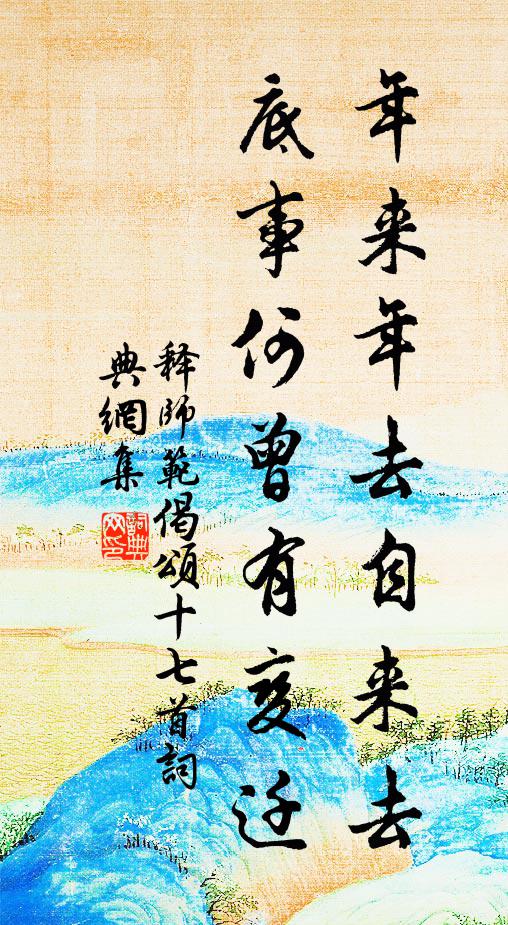 年来年去自来去
底事何曾有变迁
释師範偈頌十七首詞
典網集
詞典